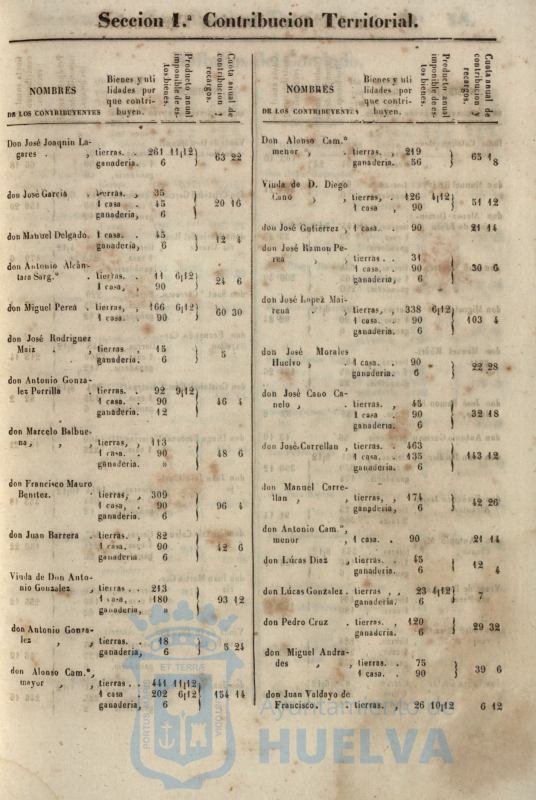 Seccion 1.ª Contribucion Territorial.
NOMBRES
DE LOS CONTRIBUYENTES
Bienes y uti
lidades por
que contri-
buyen.
Producto anual
imponible de es-
tos bienes.
Cuota anual de
contribucion y
recargos.
Don José Joaquin La-
gares . , tierras. 261 11|12
ganaderia. 6 63 22
don José Garcia , tierras. , 35
1 casa . 45 20 16
ganaderia, 6
don Manuel Delgado. 1 casa. . 45
ganaderia, 6 12 4
don Antonio Alcàn-
tara Sarg.º . tierras. . 11 6|12
1 casa, , 90 24 6
don Miguel Perea . tierras, , 166 6|12
1 casa. . 90 60 30
don José Rodriguez
Maiz . , tierras, . 15
ganaderia. 6 5
don Antonio Gonza-
lez Porrilla . tierras. . 92 9|12
1 casa. . 90 46 4
ganaderia. 12
don Marcelo Balbue-
na, , , tierras, , 113
1 casa. . 90 48 6
ganaderia. »
don Francisco Mauro
Benitez. . tierras, , 309
1 casa, . 90 96 4
ganaderia. 6
don Juan Barrera . tierras. . 82
1 casa. . 90 42 6
ganaderia. 6
Viuda de Don Anto-
nio Gonzalez , tierras. . 213
1 casa, . 180 93 12
ganaderia, »
don Antonio Gonza-
lez , tierras. . 18
ganaderia, 6 5 24
don Alonso Cam.º,
mayor , , tierras . . 441 11|12
1 casa . 202 6|12 154 14
ganaderia, 6
NOMBRES
DE LOS CONTRIBUYENTES
Bienes y uti
lidades por
que contri-
buyen.
Producto anual
imponible de es-
tos bienes.
Cuota anual de
contribucion y
recargos.
Don Alonso Cam.º
menor , . tierras. . 219
ganaderia. 56 65 18
Viuda de D. Diego
Cano , , tierras, . 126 4|12
1 casa , 90 51 12
don José Gutierrez , 1 casa. . 90 21 14
don José Ramon Pe-
rea , , tierras . . 31
1 casa, . 90 30 6
ganaderia, 6
don José Lopez Mai-
rena . , tierras, , 338 6|12
1 casa. . 90 103 4
ganaderia. 6
don José Morales
Huelvo , . 1 casa. . 90
ganaderia. 6 22 28
don José Cano Ca-
nelo , . tierras. . 45
1 casa . 90 32 18
ganaderia. 6
don José Correllan , tierras. . 463
1 casa. . 135 143 12
ganaderia. 6
don Manuel Corre-
llan , , tierras, , 174
ganaderia, 6 42 26
don Antonio Cam.º,
menor , 1 casa. . 90 21 14
don Lúcas Diaz , tierras. . 45
ganaderia. 6 12 4
don Lúcas Gonzalez . tierras . , 23 4|12
ganaderia. 6 7
don Pedro Cruz . tierras, . 120
ganaderia. 6 29 32
don Miguel Andra-
des , , tierras. . 75
1 casa. . 90 39 6
don Juan Valdayo de
Francisco. . tierras. . 26 10|12 6 12
PORTUS MARIS
ET TERRÆ
CUSTODIA
Ayuntamiento de
HUELVA